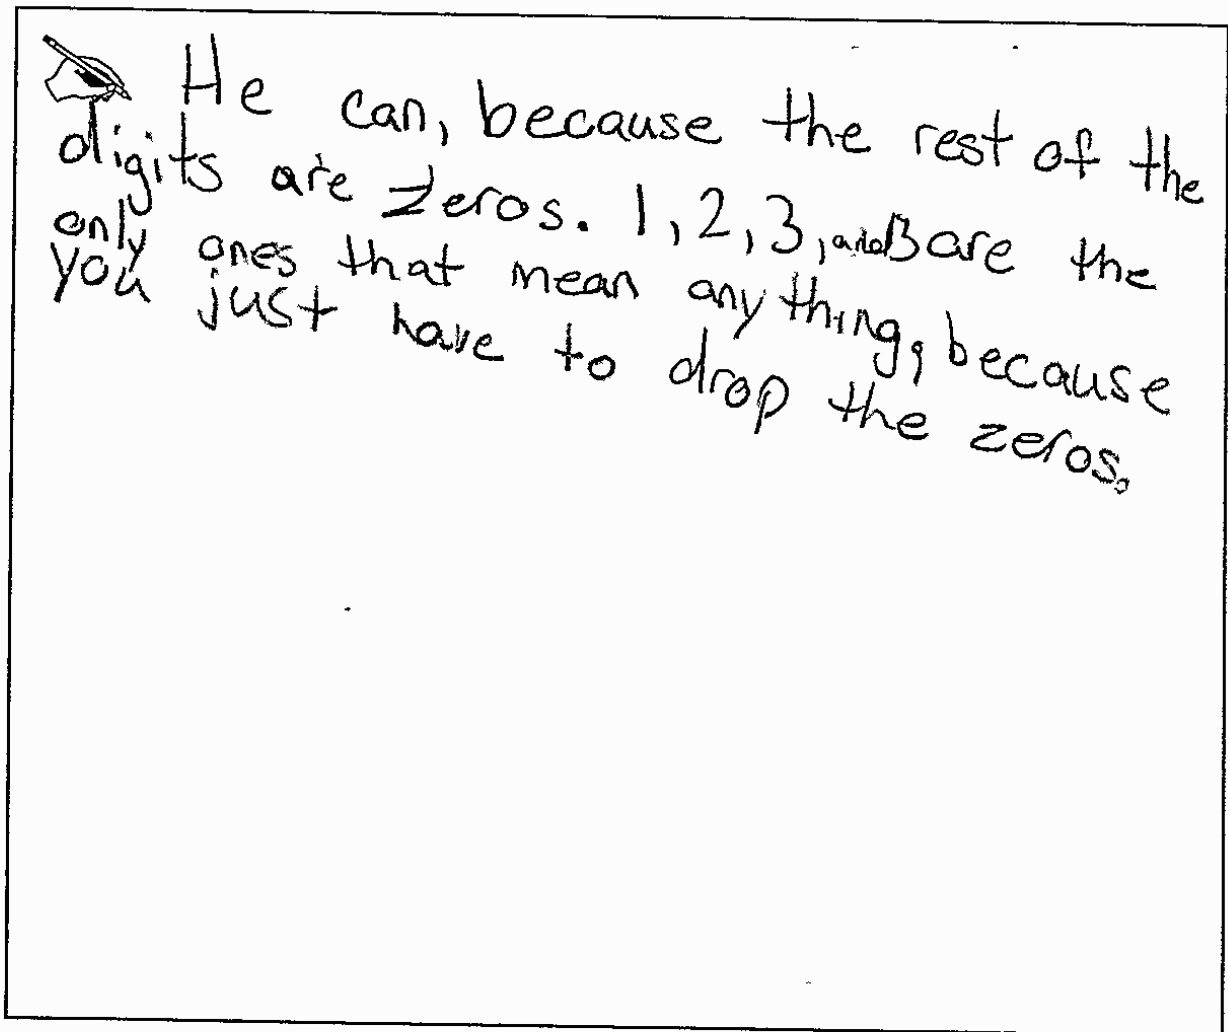 He can, because the rest of the
digits are zeros. 1, 2, 3, and B are the
only ones that mean anything, because
you just have to drop the zeros.